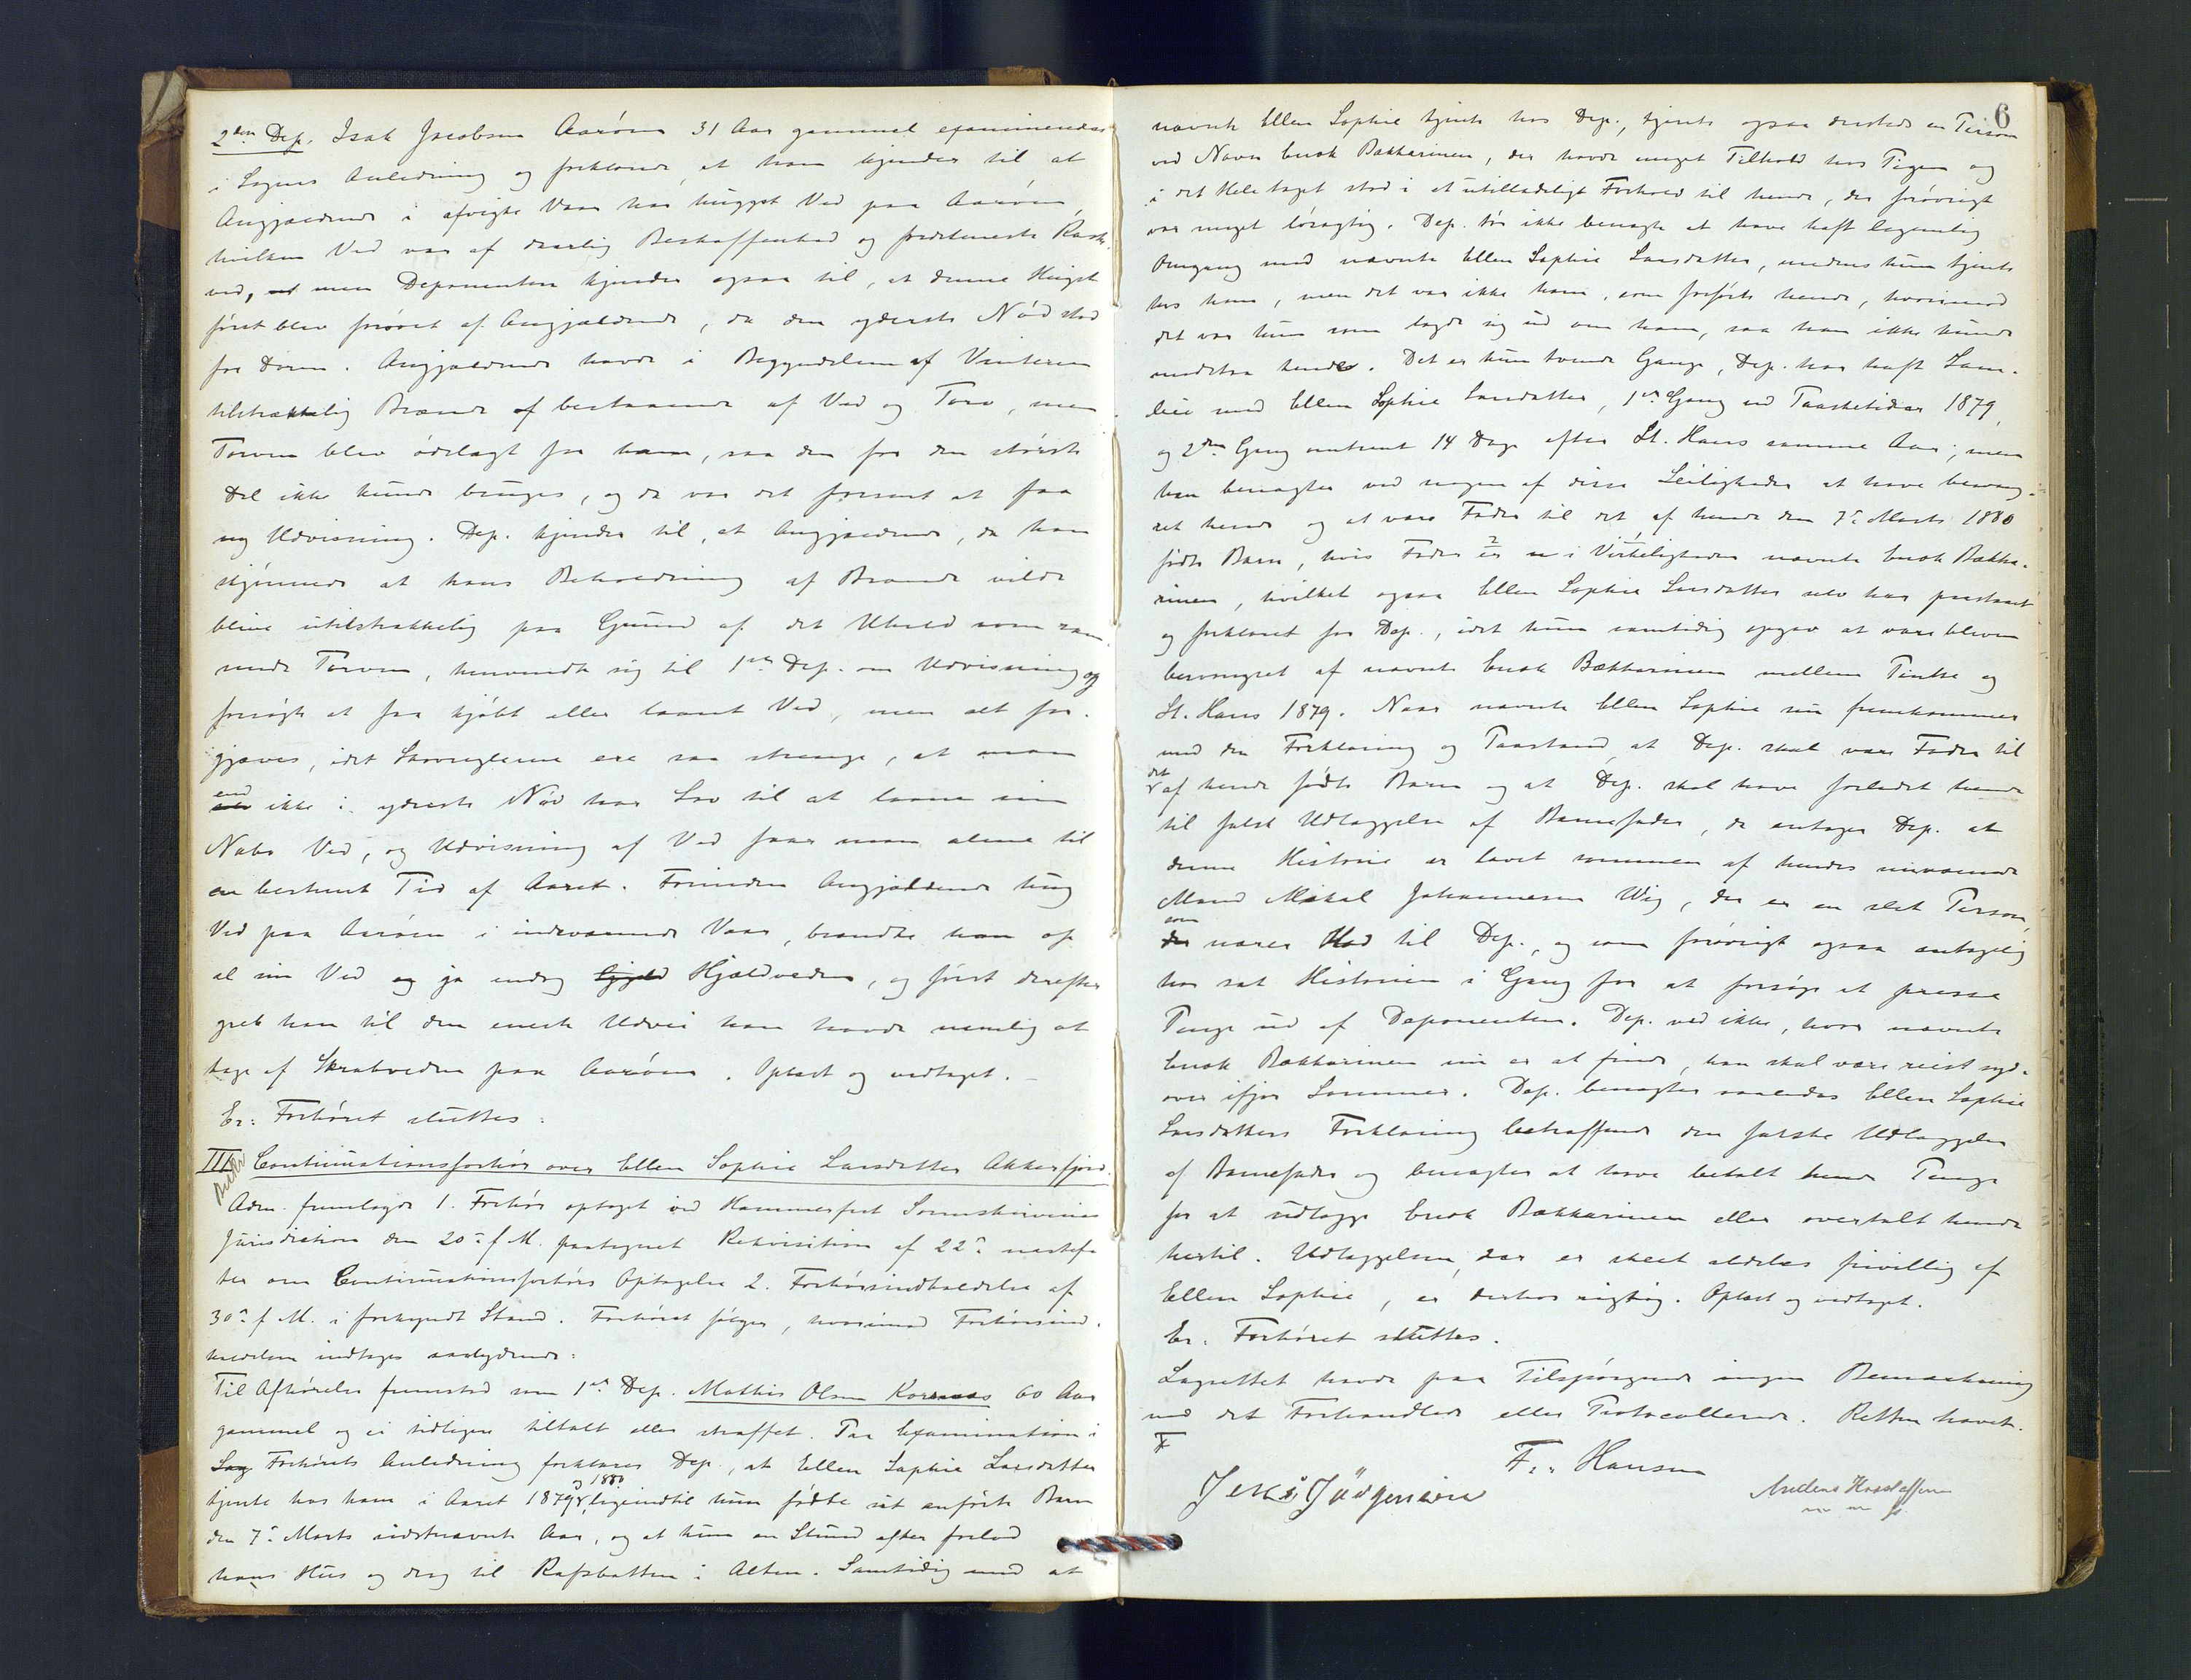 2den Dep. Isak Jacobsen Aarøen 31 Aar gammel examineredes
i Sagens Anledning og forklarede, at han kjender til at
Angjældende i afvigte Vaar har hugget Ved paa Aarøen,
hvilken Ved var af daarlig Beskaffenhed og fordetmeste Rask-
ved, men Deponenten kjender ogsaa til, at denne Hugst
først blev prøvet af Angjældende, da den yderste Nød stod
for Døren. Angjældende havde i Begyndelsen af Vinteren
tilstrækkelig Brænde bestaaende af Ved og Torv, men
Torven blev ødelagt for ham, saa den for den største
Del ikke kunde bruges, og da var det forsent at faa
ny Udvisning. Dep. kjender til, at Angjældende, da han
skjønnede at hans Beholdning af Brænde vilde
blive utilstrækkelig paa Grund af det Uheld som ram
mede Torven, henvendte sig til 1ste Dep. om Udvisning og
forsøgte at faa kjøbt eller laant Ved, men alt for-
gjæves, idet Skovreglerne ere saa strenge, at man
end ikke i yderste Nød har Lov til at laane sin
Nabo Ved, og Udvisning af Ved faar man alene til
en bestemt Tid af Aaret. Forinden Angjældende hug
Ved paa Aarøen i indeværende Vaar, brændte han op
al sin Ved ja endog Hjældveden, og først derefter
greb han til den eneste Udvei han havde nemlig at
tage af Skrabveden paa Aarøen. Oplæst og vedtaget.
Er: Forhøret sluttes:
III Continuationsforhør over Ellen Sophie Larsdatter Akkarfjord.
Adm. fremlagde 1. Forhør optaget ved Hammerfest Sorenskriveries
Jurisdiction den 20de f. M. paategnet Rekvisition af 22de næstef-
ter om Continuationsforhørs Optagelse 2. Forhørsindkaldelse af
30te f. M. i forkyndt Stand. Forhøret følger, hvorimod Forhørsind-
kaldelsen indtages saalydende:
Til Afhørelse fremstod som 1ste Dep. Mathis Olsen Korsnæs 60 Aar
gammel og ei tidligere tiltalt eller straffet. Paa Examination i
Forhørets Anledning forklarer Dep., at Ellen Sophie Larsdatter
og 1880
tjente hos ham i Aaret 1879, ligeindtil hun fødte sit anførte Barn
den 7de Marts sidstnævnte Aar, og at hun en Stund efter forlod
hans Hus og drog til Rafsbotten i Alten. Samtidig med at
6
nævnte Ellen Sophie tjente hos Dep., tjente ogsaa dersteds en Person
ved Navn Enok Bækkarinen, der havde meget Tilhold hos Pigen og
i det Hele taget stod i et utilladeligt Forhold til hende, der forøvrigt
var meget løsagtig. Dep. tør ikke benægte at have haft legemlig
Omgang med nævnte Ellen Sophie Larsdatter, medens hun tjente
hos ham, men det var ikke ham, som forførte hende, hvorimod
det var hun som lagde sig ud om ham, saa han ikke kunde
modstaa hende. Det er kun tvende Gange, Dep. har haft Sam-
leie med Ellen Sophie Larsdatter, 1ste Gang ved Paasketider 1879,
og 2den Gang omtrent 14 Dage efter St. Hans samme Aar; men
han benægter ved nogen af disse Leiligheder at have besvang-
ret hende og at være Fader til det af hende den 7de Marts 1880
fødte Barn, hvis Fader er i Virkeligheden nævnte Enok Bækka-
rinen, hvilket ogsaa Ellen Sophie Larsdatter selv har paastaaet
og forklaret for Dep., idet hun samtidig opgav at være bleven
besvangret af nævnte Enok Bækkarinen mellem Pintse og
St. Hans 1879. Naar nævnte Ellen Sophie nu fremkommer
med den Forklaring og Paastand, at Dep. skal være Fader til
det af hende fødte Barn og at Dep. skal have forledet hende
til falsk Udlæggelse af Barnefader, da antager Dep. at
denne Historie er lavet sammen af hendes nuværende
Mand Mikal Johannesen Wig, der er en slet Person,
som nærer Had til Dep., og som forøvrigt ogsaa antagelig
har sat Historien i Gang for at forsøge at presse
Penge ud af Deponenten. Dep. ved ikke, hvor nævnte
Enok Bækkarinen nu er at finde, han skal være reist syd-
over ifjor Sommer. Dep. benægter saaledes Ellen Sophie
Larsdatters Forklaring betræffende den falske Udlæggelse
af Barnefader og benægter at have betalt hende Penge
for at udlægge Enok Bækkarinen eller overtalt hende
hertil. Udlæggelsen, der er skeet aldeles frivillig af
Ellen Sophie, er derhos rigtig. Oplæst og vedtaget.
Er: Forhøret sluttes.
Lagrettet havde paa Tilspørgende ingen Bemærkning
ved det Forhandlede eller Protocollerede. Retten hævet.
Fr. Hansen
Jens Jørgensen
Anders
m. p. P.